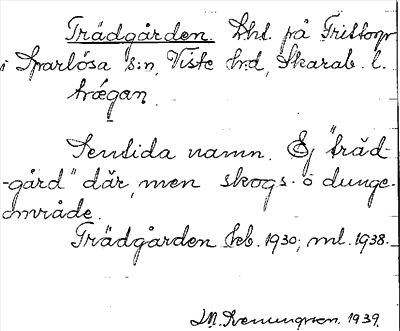 Trädgården. Lht. på Tristorp
i Sparlösa s:n, Viste hrd, Skarab. l.
trǽgan
Sentida namn. Ej "träd-
-gård" där, men skogs- o dunge-
område.
Trädgården Seb. 1930; ml. 1938.
J.N. Svenungson. 1939.